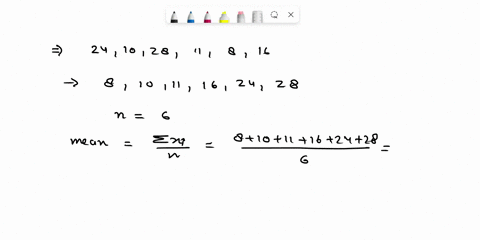 ⇒ 24, 10, 28, 11, 8, 16
→ 8, 10, 11, 16, 24, 28
n = 6
mean = Σxi/n = 8+10+11+16+24+28/6 =